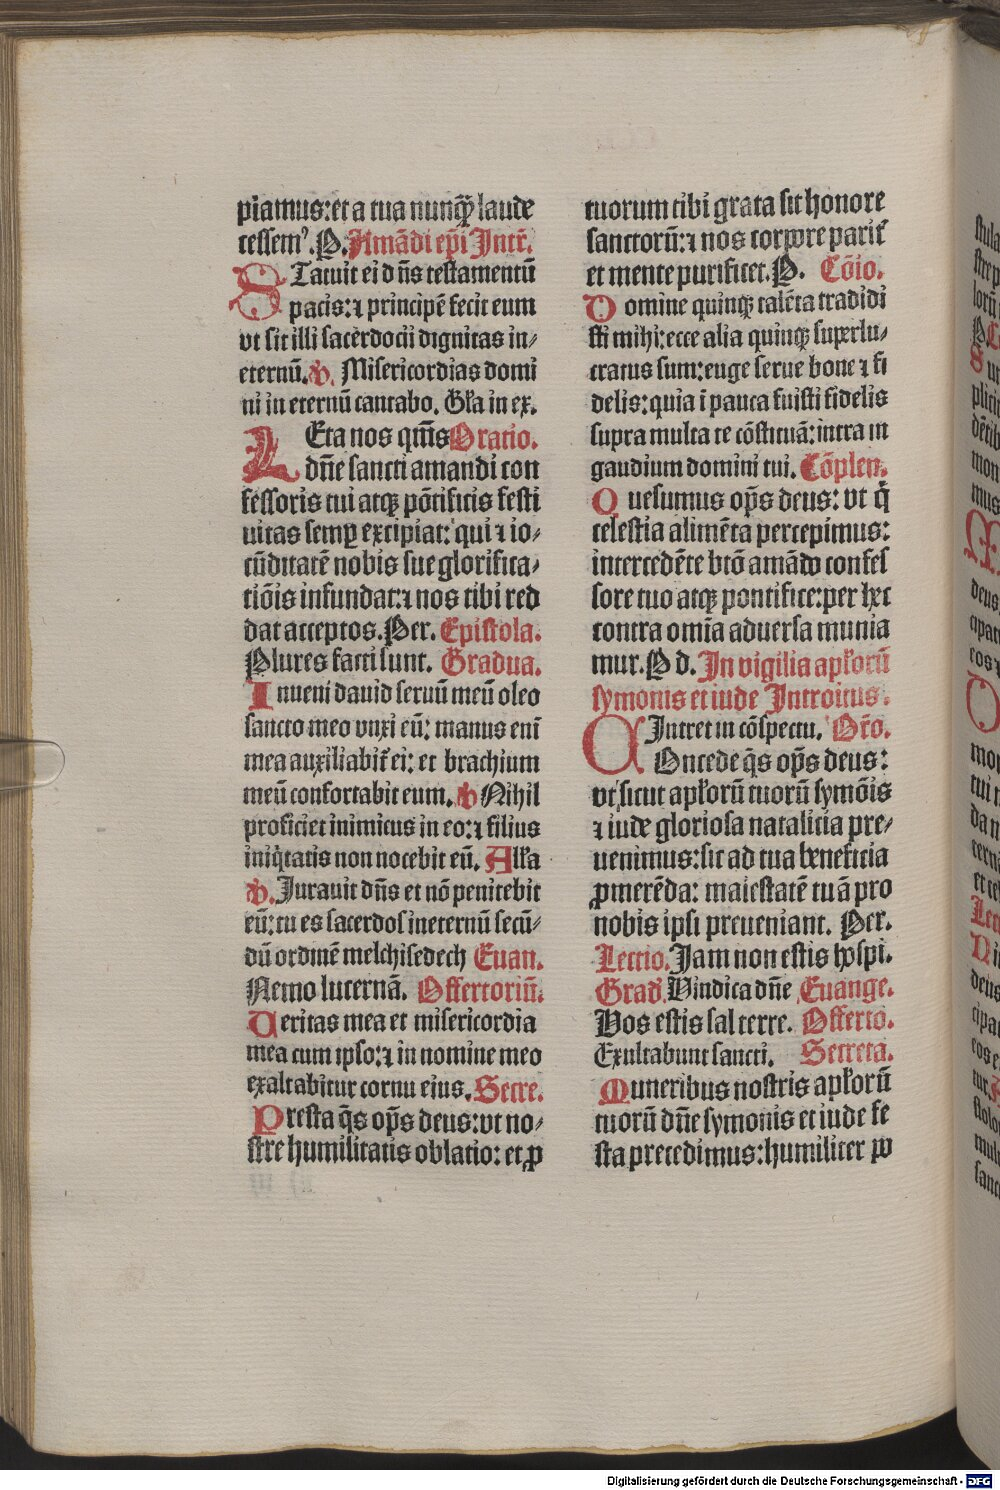 piamus: et a tua nunqꝫ laude
cessemꝰ. P. Amādi ep̄i Intr̄.
STatuit ei dn̄s testamentū
pacis: ⁊ principē fecit eum
vt sit illi sacerdocii dignitas in⸗
eternū. V̄. Misericordias domi
ni in eternū cantabo. Gl̄a in ex.
LEta nos qm̄s Oratio.
dn̄e sancti amandi con
fessoris tui atqꝫ pōtificis festi
uitas semꝑ excipiat: qui ⁊ io⸗
cūditatē nobis sue glorifica⸗
tiōis infundat: ⁊ nos tibi red
dat acceptos. Per. Epistola.
Plures facti sunt. Gradua.
Inueni dauid seruū meū oleo
sancto meo vnxi eū: manus enī
mea auxiliabit̄ ei: et brachium
meū confortabit eum. V̄ Nihil
proficiet inimicus in eo: ⁊ filius
iniq̄tatis non nocebit eū. All̄a
V̄. Jurauit dn̄s et nō penitebit
eū: tu es sacerdos ineternū secū⸗
dū ordinē melchisedech Euan.
Nemo lucernā. Offertoriū.
Ueritas mea et misericordia
mea cum ipso: ⁊ in nomine meo
exaltabitur cornu eius. Secre.
Presta q̄s op̄s deus: vt no⸗
stre humilitatis oblatio: et ꝓ
tuorum tibi grata sit honore
sanctorū: ⁊ nos corpore parit̄
et mente purificet. P. Cōio.
Domine quinqꝫ talēta tradidi
sti mihi: ecce alia quinqꝫ superlu⸗
cratus sum: euge serue bone ⁊ fi
delis: quia ī pauca fuisti fidelis
supra multa te cōstituā: intra in
gaudium domini tui. Cōplen.
Quesumus op̄s deus: vt q̄
celestia alimēta percepimus:
intercedēte btō amādo confes
sore tuo atqꝫ pontifice: per hec
contra omīa aduersa munia
mur. P d. In vigilia apl̄orū
symonis et iude Introitus.
Intret in cōspectu. Or̄o.
COncede q̄s op̄s deus:
vt sicut apl̄orū tuorū symōis
⁊ iude gloriosa natalicia pre⸗
uenimus: sic ad tua beneficia
ꝓmerēda: maiestatē tuā pro
nobis ipsi preueniant. Per.
Lectio. Jam non estis hospi.
Grad̄. Vindica dn̄e Euange.
Vos estis sal terre. Offerto.
Exultabunt sancti. Secreta.
Muneribus nostris apl̄orū
tuorū dn̄e symonis et iude fe
sta precedimus: humiliter po
Digitalisierung gefördert durch die Deutsche Forschungsgemeinschaft - DFG